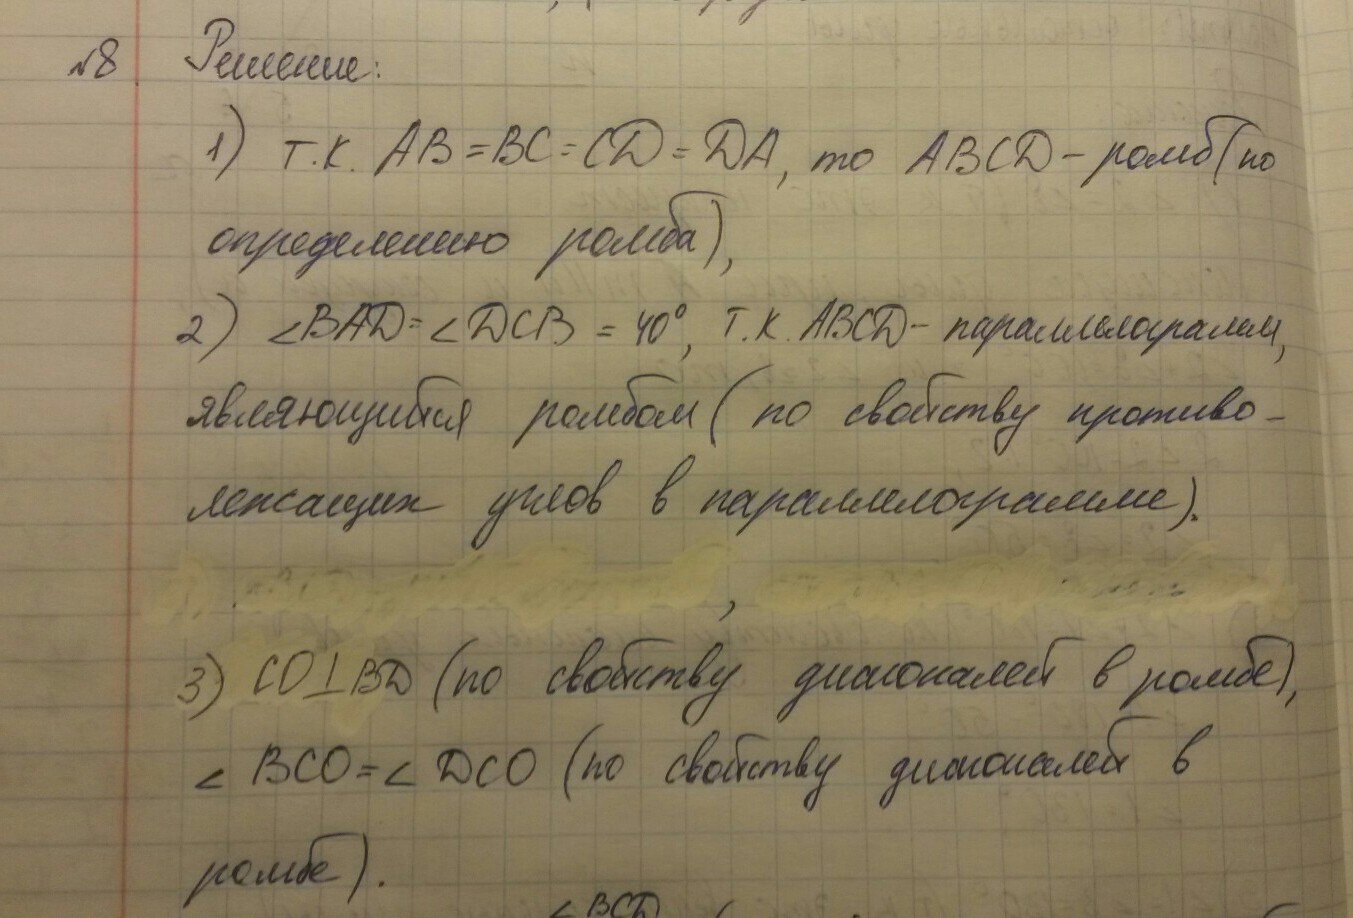 №8 Решение:
1) т.к. AB=BC=CD=DA, то ABCD – ромб (по
определению ромба),
2) ∠BAD=∠DCB = 40°, т.к. ABCD – параллелограмм,
являющийся ромбом (по свойству противо-
лежащих углов в параллелограмме).
3) CO⊥BD (по свойству диагоналей в ромбе),
∠BCO=∠DCO (по свойству диагоналей в
ромбе).
∠BCD